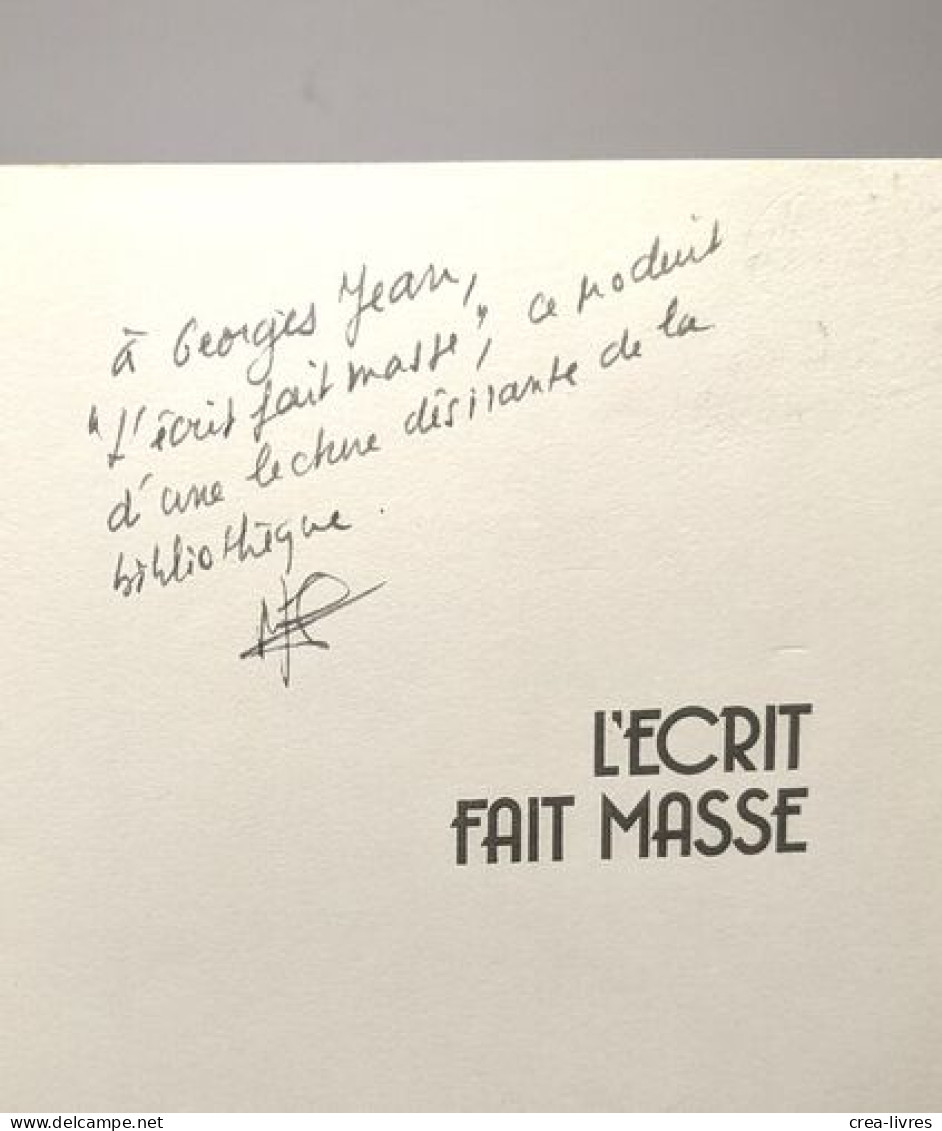 à Georges Jean,
"L'écrit fait masse", ce produit
d'une lecture désirante de la
bibliothèque.
L'ECRIT
FAIT MASSE
www.delcampe.net
crea-livres